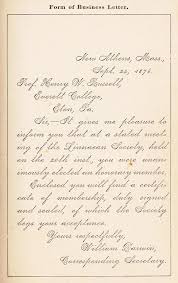 Form of Business Letter.
New Athens, Mass.,
Sept. 22, 1876.
Prof. Henry W. Russell,
Everett College,
Elon, Pa.
Sir,—It gives me pleasure to
inform you that at a stated meet-
ing of the Linnaean Society, held
on the 20th inst., you were unan-
imously elected an honorary member.
Enclosed you will find a certifi-
cate of membership, duly signed
and sealed, of which the Society
begs your acceptance.
Yours respectfully,
William Darwin,
Corresponding Secretary.